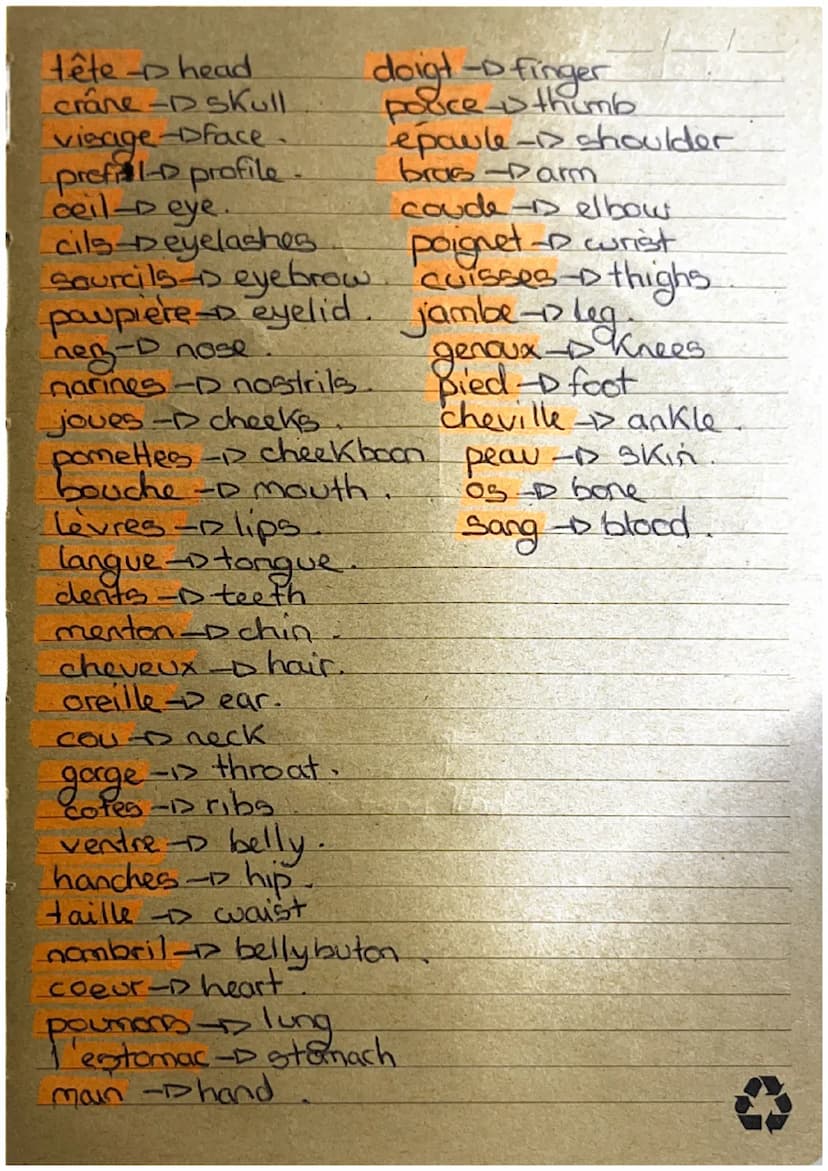 tête → head
crâne → skull
visage → face.
profil → profile.
oeil → eye.
cils → eyelashes
sourcils → eyebrow.
paupière → eyelid.
nez → nose.
narines → nostrils.
joues → cheeks.
pomettes → cheekboon
bouche → mouth.
lèvres → lips.
langue → tongue.
dents → teeth
menton → chin.
cheveux → hair.
oreille → ear.
cou → neck
gorge → throat.
cotes → ribs
ventre → belly.
hanches → hip.
taille → waist
nombril → belly buton.
coeur → heart.
poumons → lung
l'estomac → stomach
main → hand.
doigt → finger
pouce → thumb
épaule → shoulder
bras → arm
coude → elbow
poignet → wrist
cuisses → thighs.
jambe → leg.
genoux → Knees
pied → foot
cheville → ankle.
peau → skin.
os → bone
sang → blood.